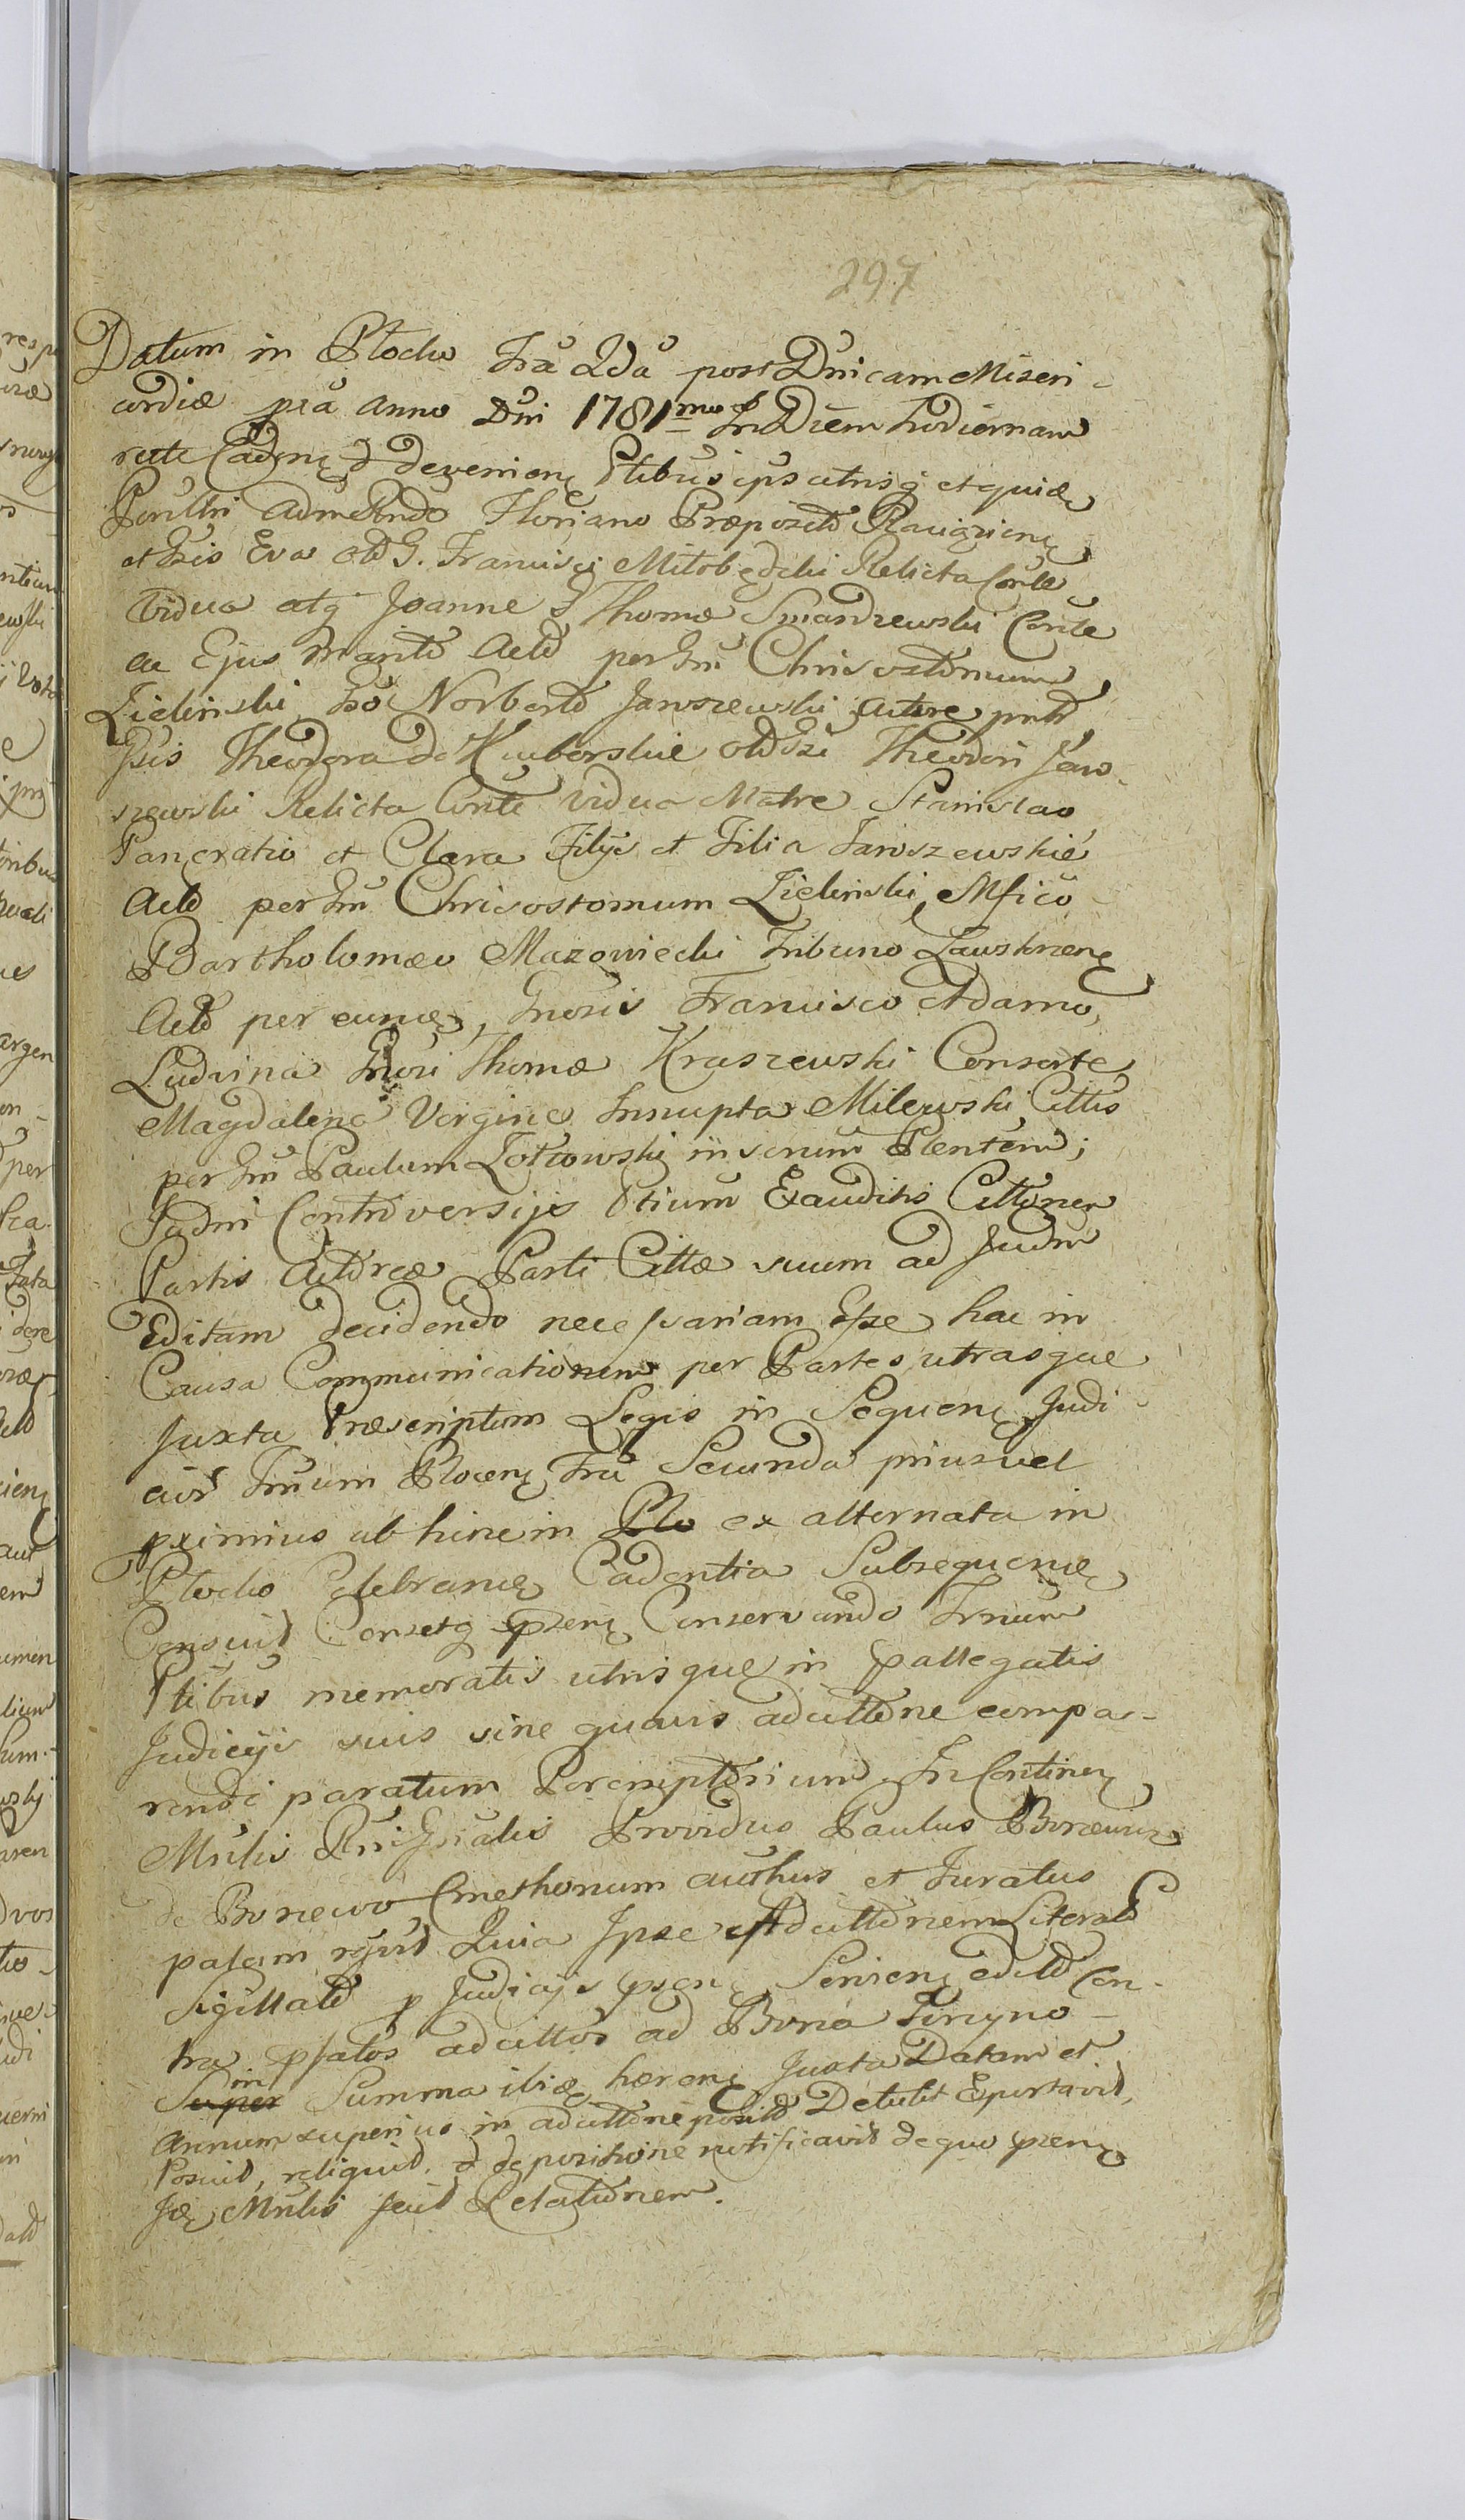 297
Datum in Plocko Fra 2da post Dnicam Miseri-
cordiæ pia Anno Dni 1781mo In Diem hodiernam
recte Caden et devenien Ptibus ipsis utrisq et quidē
Perilli Adm Rndo Floriano Præposito Raciązien
et Gsis Eva olo G. Francisci Miłobędzki Relicta Conte
Vidua atq Joanne G Thomæ Smardzewski Conte
ac Ejus Marito Acto per Gm Chrisostomum
Zieliński, Gso Norberto Jaroszewski Actore pntr
Gsis Theodora de Kuberskie olo Gsi Theodori Jaro-
szewski Relicta Conte Vidua Matre Stanislao
Pancratio et Clara Filijs et Filia Jaroszewskie
Acto per Gm Chrisostomum Zieliński, Mfico
Bartholomæo Mazowiecki Tribuno Zawskrzen
Acto per eundē, Gnosis Francisco Adamo,
Ludvina Gnosi Thomæ Kraszewski Consorte,
Magdalena Virgine Innupta Milewski Cittis
per Gm Paulum Zotowski insimm Plentem;
Judm Controversijs Ptium Exauditis Cittonem
Partis Actoreæ Parti Cittæ suum ad Judm
Editam decidendo necessariam Esse hac in
Causa Communicationem per Partes utrasque
Juxta Præscriptum Legis in Sequen Judi-
cior Trnum Plocen Fra Secunda prius vel
pximius ab hinc in Plo ex alternata in
Plocko Celebrand Cadentia Subsequend
Censuit Censetq psen Conservando Trnum
Ptibus memoratis utrisque in pallegatis
Judicijs suis sine quavis adcittone compa-
rendi paratum Peremptorium. In Continen
Mnlis Rni Gnalis Providus Paulus Borzewicz
de Borzewo Cmethonum authus et Juratus
palam rgvit Quia Ipse Adcittonem Literalr
Sigillatr p Judicijs psen Servien edito Con-
tra pfatos adcittos ad Bona Żerzyno
Super in Summa ibiq hæren Juxta Datam et
Annum superius in adcittone posito Detulit Eportavit,
Posuit, reliquit, et de positione notificavit de quo psen
Jdē Mnlis fecit Relationem.